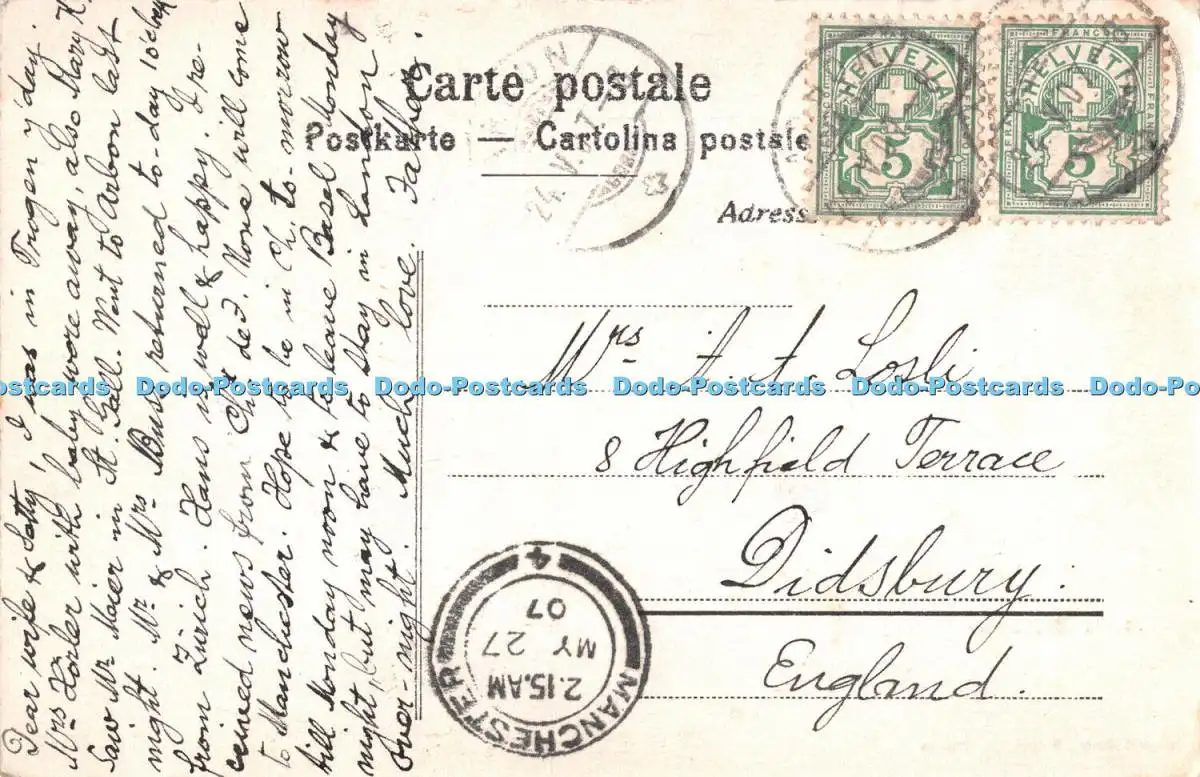 Carte postale
Postkarte — Cartolina postale
Adress
FRANCO HELVETIA 5
FRANCO HELVETIA 5
24. V. 07
Mrs A. A. Losli
8 Highfield Terrace
Didsbury.
England.
MANCHESTER
2.15.AM
MY 27
07
4
Dear wife & Satty, I was in Trogen y'day.
Mrs Hörler with baby were away, also Mary K.
Saw Mr Meier in St. Gall. Went to Arbon last
night. Mr & Mrs returned to-day 10 o'clock
from Zürich. Hans is well & happy. I re-
ceived news from Chr ded. None will come
to Manchester. Hope to be in Ch. to-morrow
till Monday noon & to leave Basel Monday
night, but may have to stay in London
over-night. Much love. Father.
Dodo-Postcards Dodo-Postcards Dodo-Postcards Dodo-Postcards Dodo-Postcards Dodo-Postcards